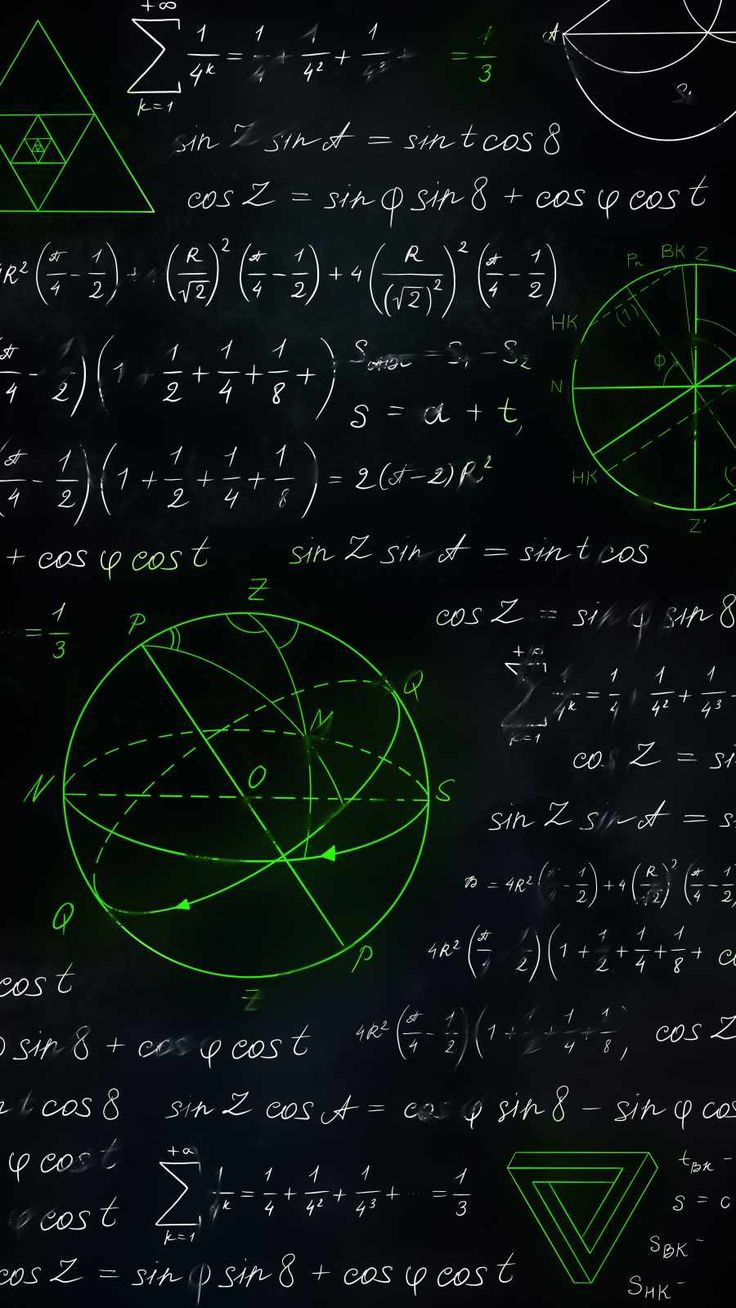 +∞
∑ 1/4^k = 1/4 + 1/4² + 1/4³ + = 1/3
k=1
A
S
sin Z sin A = sin t cos 8
cos Z = sin φ sin 8 + cos φ cos t
4R² (π/4 - 1/2) + (R/√2)² (π/4 - 1/2) + 4 (R/(√2)²)² (π/4 - 1/2)
P BK Z
HK
(1)
φ
N
HK
Z'
π/4 - 1/2) (1 + 1/2 + 1/4 + 1/8 + )
= S₁ - S₂
s = a + t,
π/4 - 1/2) (1 + 1/2 + 1/4 + 1/8) = 2(π-2)R²
+ cos φ cos t
sin Z sin A = sin t cos
= 1/3
cos Z = sin φ sin 8
Z
P
Q
N
N
O
S
Q
P
Z
∑ 1/4^k = 1/4 1/4² + 1/4³
k=1
cos Z = si
sin Z sin A = s
= 4R² (π/4 - 1/2) + 4 (R/√2)² (π/4 - 1/2
4R² (π/4 1/2) (1 + 1/2 + 1/4 + 1/8 + c
cos t
φ sin 8 + cos φ cos t
4R² (π/4 - 1/2) (1 + 1/2 + 1/4 + 1/8,
cos Z
t cos 8
sin Z cos A = cos φ sin 8 - sin φ cos
φ cos t
φ cos t
+a
∑ 1/4^k = 1/4 + 1/4² + 1/4³ + ... = 1/3
k=1
t_BK -
s = c
S_BK -
S_HK -
cos Z = sin φ sin 8 + cos φ cos t